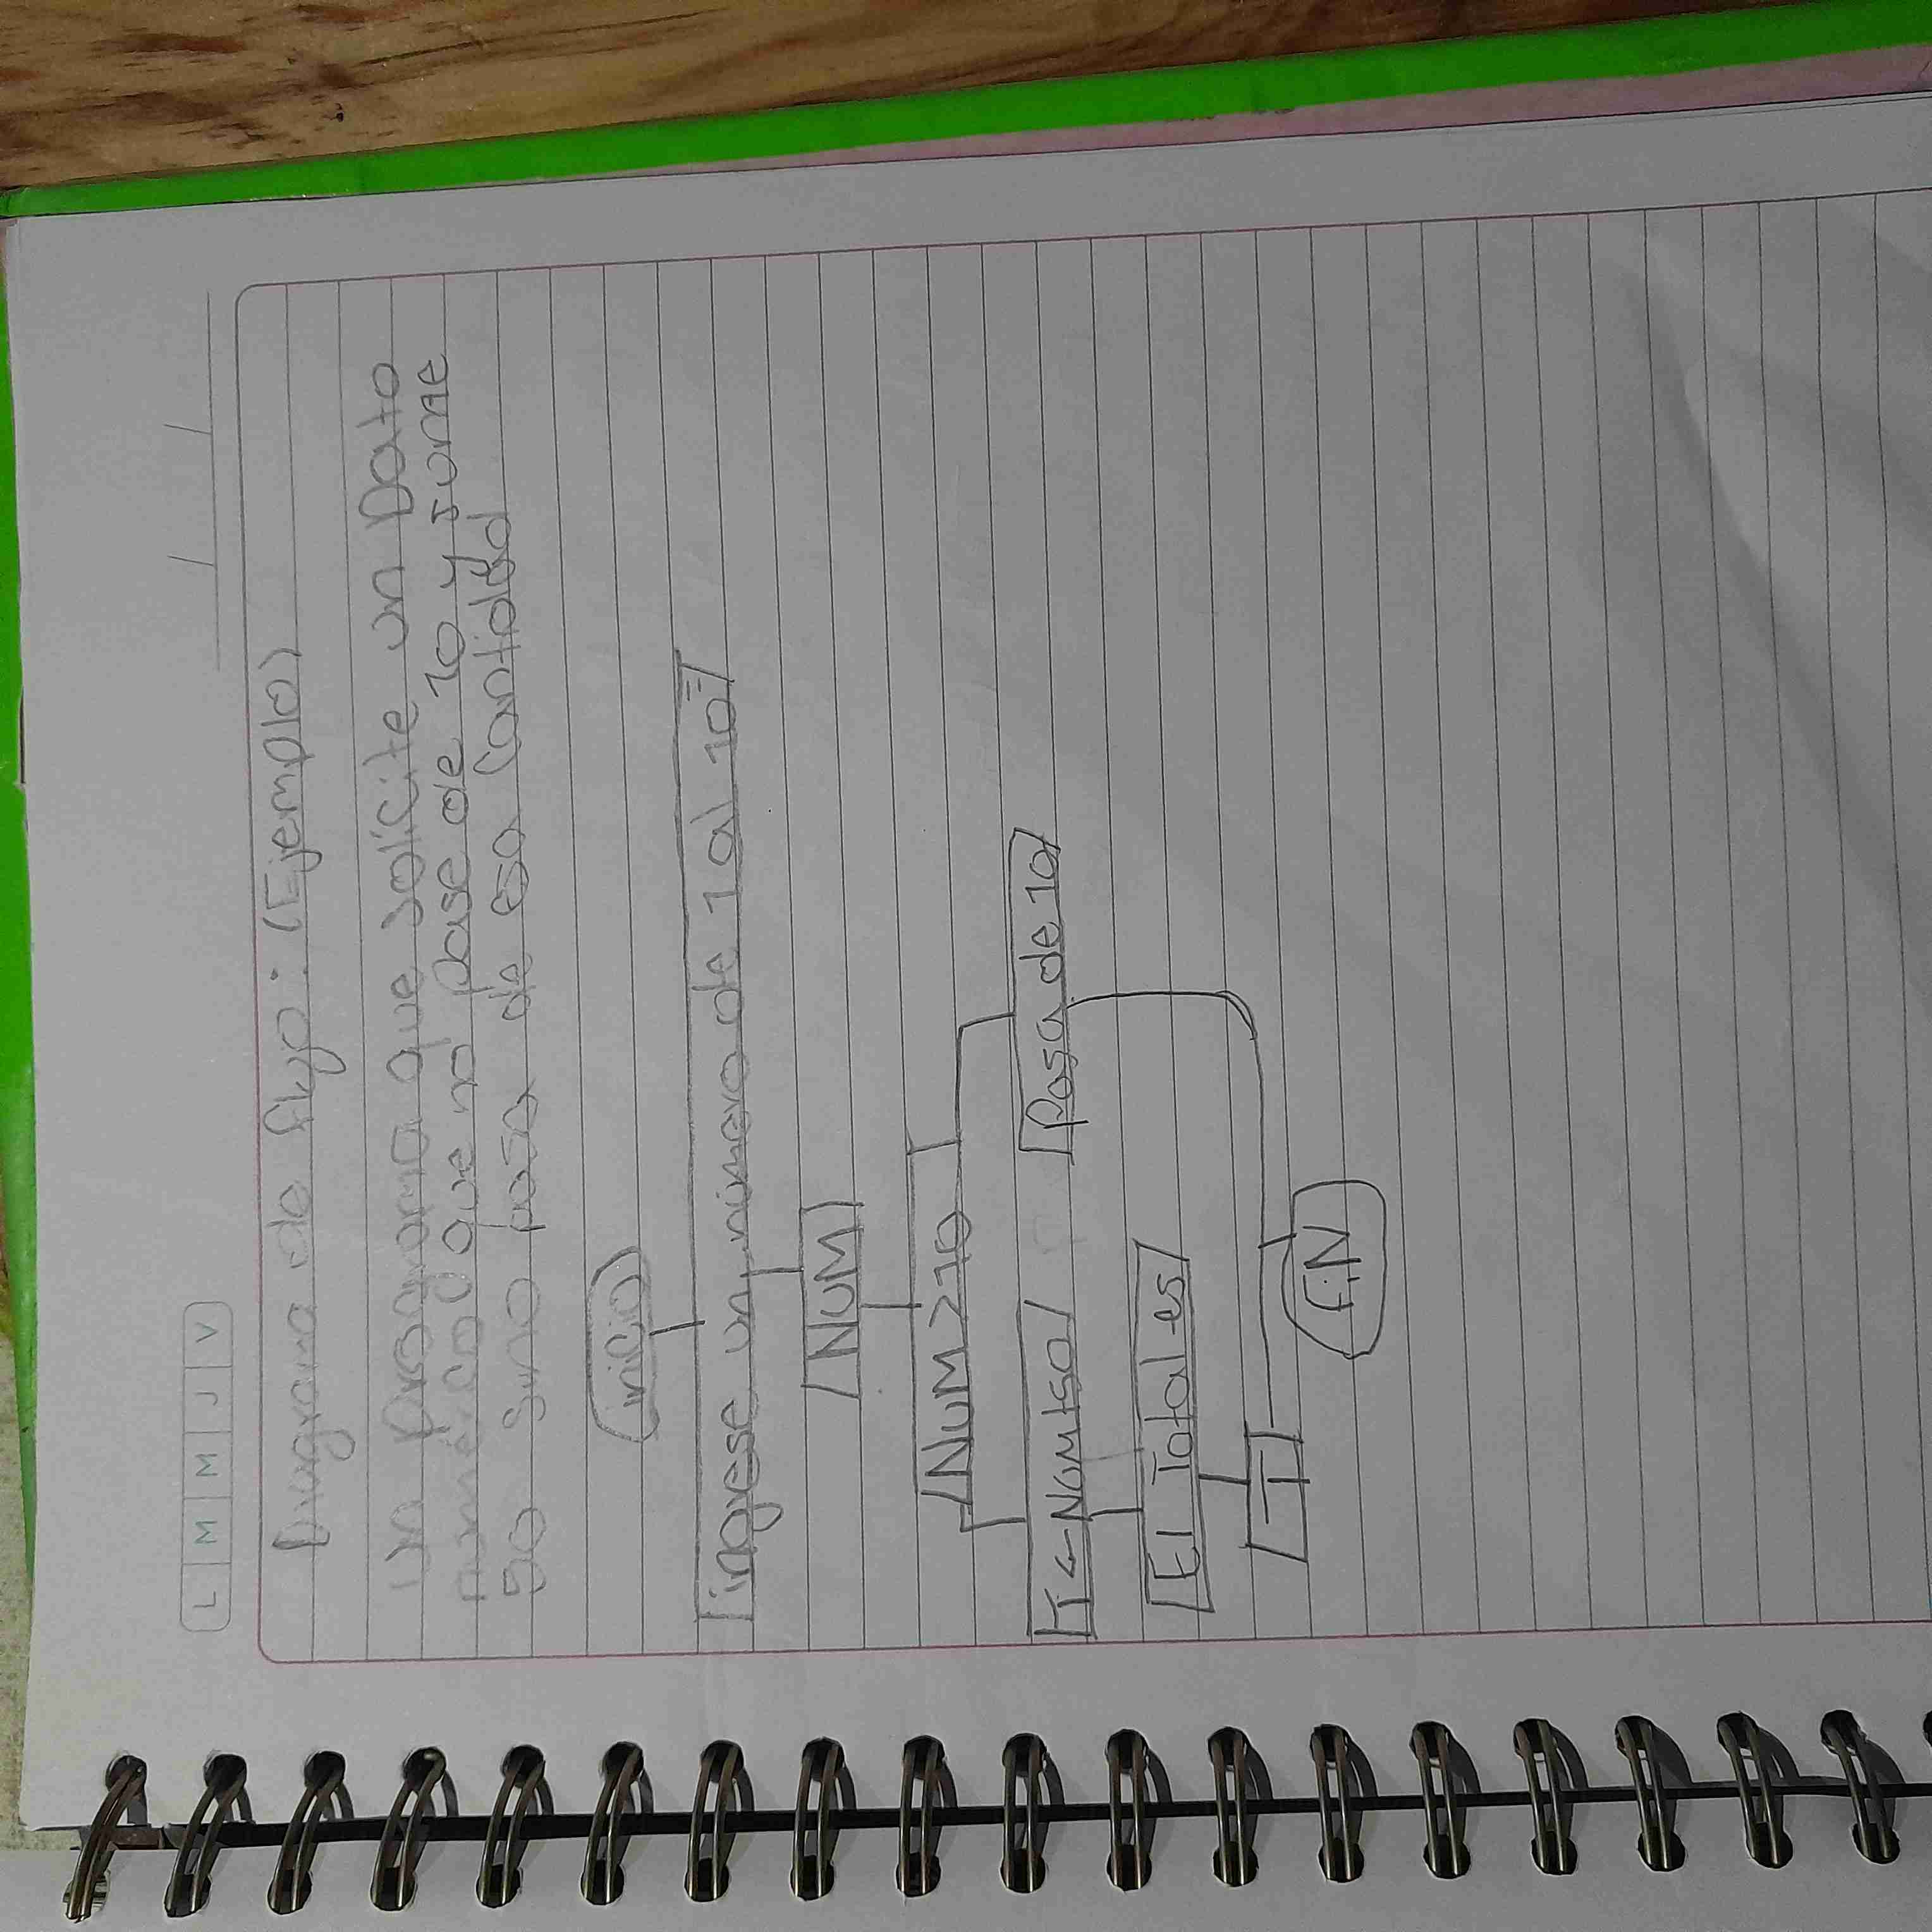 L M M J V
Diagrama de flujo: (Ejemplo)
Un programa que solicite un Dato
numérico y que no pase de 10 y sume
50 sino pasa de esa Cantidad
inicio
ingese un número de 1 al 10:
NUM
NUM>10
T<-Num+50 Pasa de 10
El Total es
T
FiN